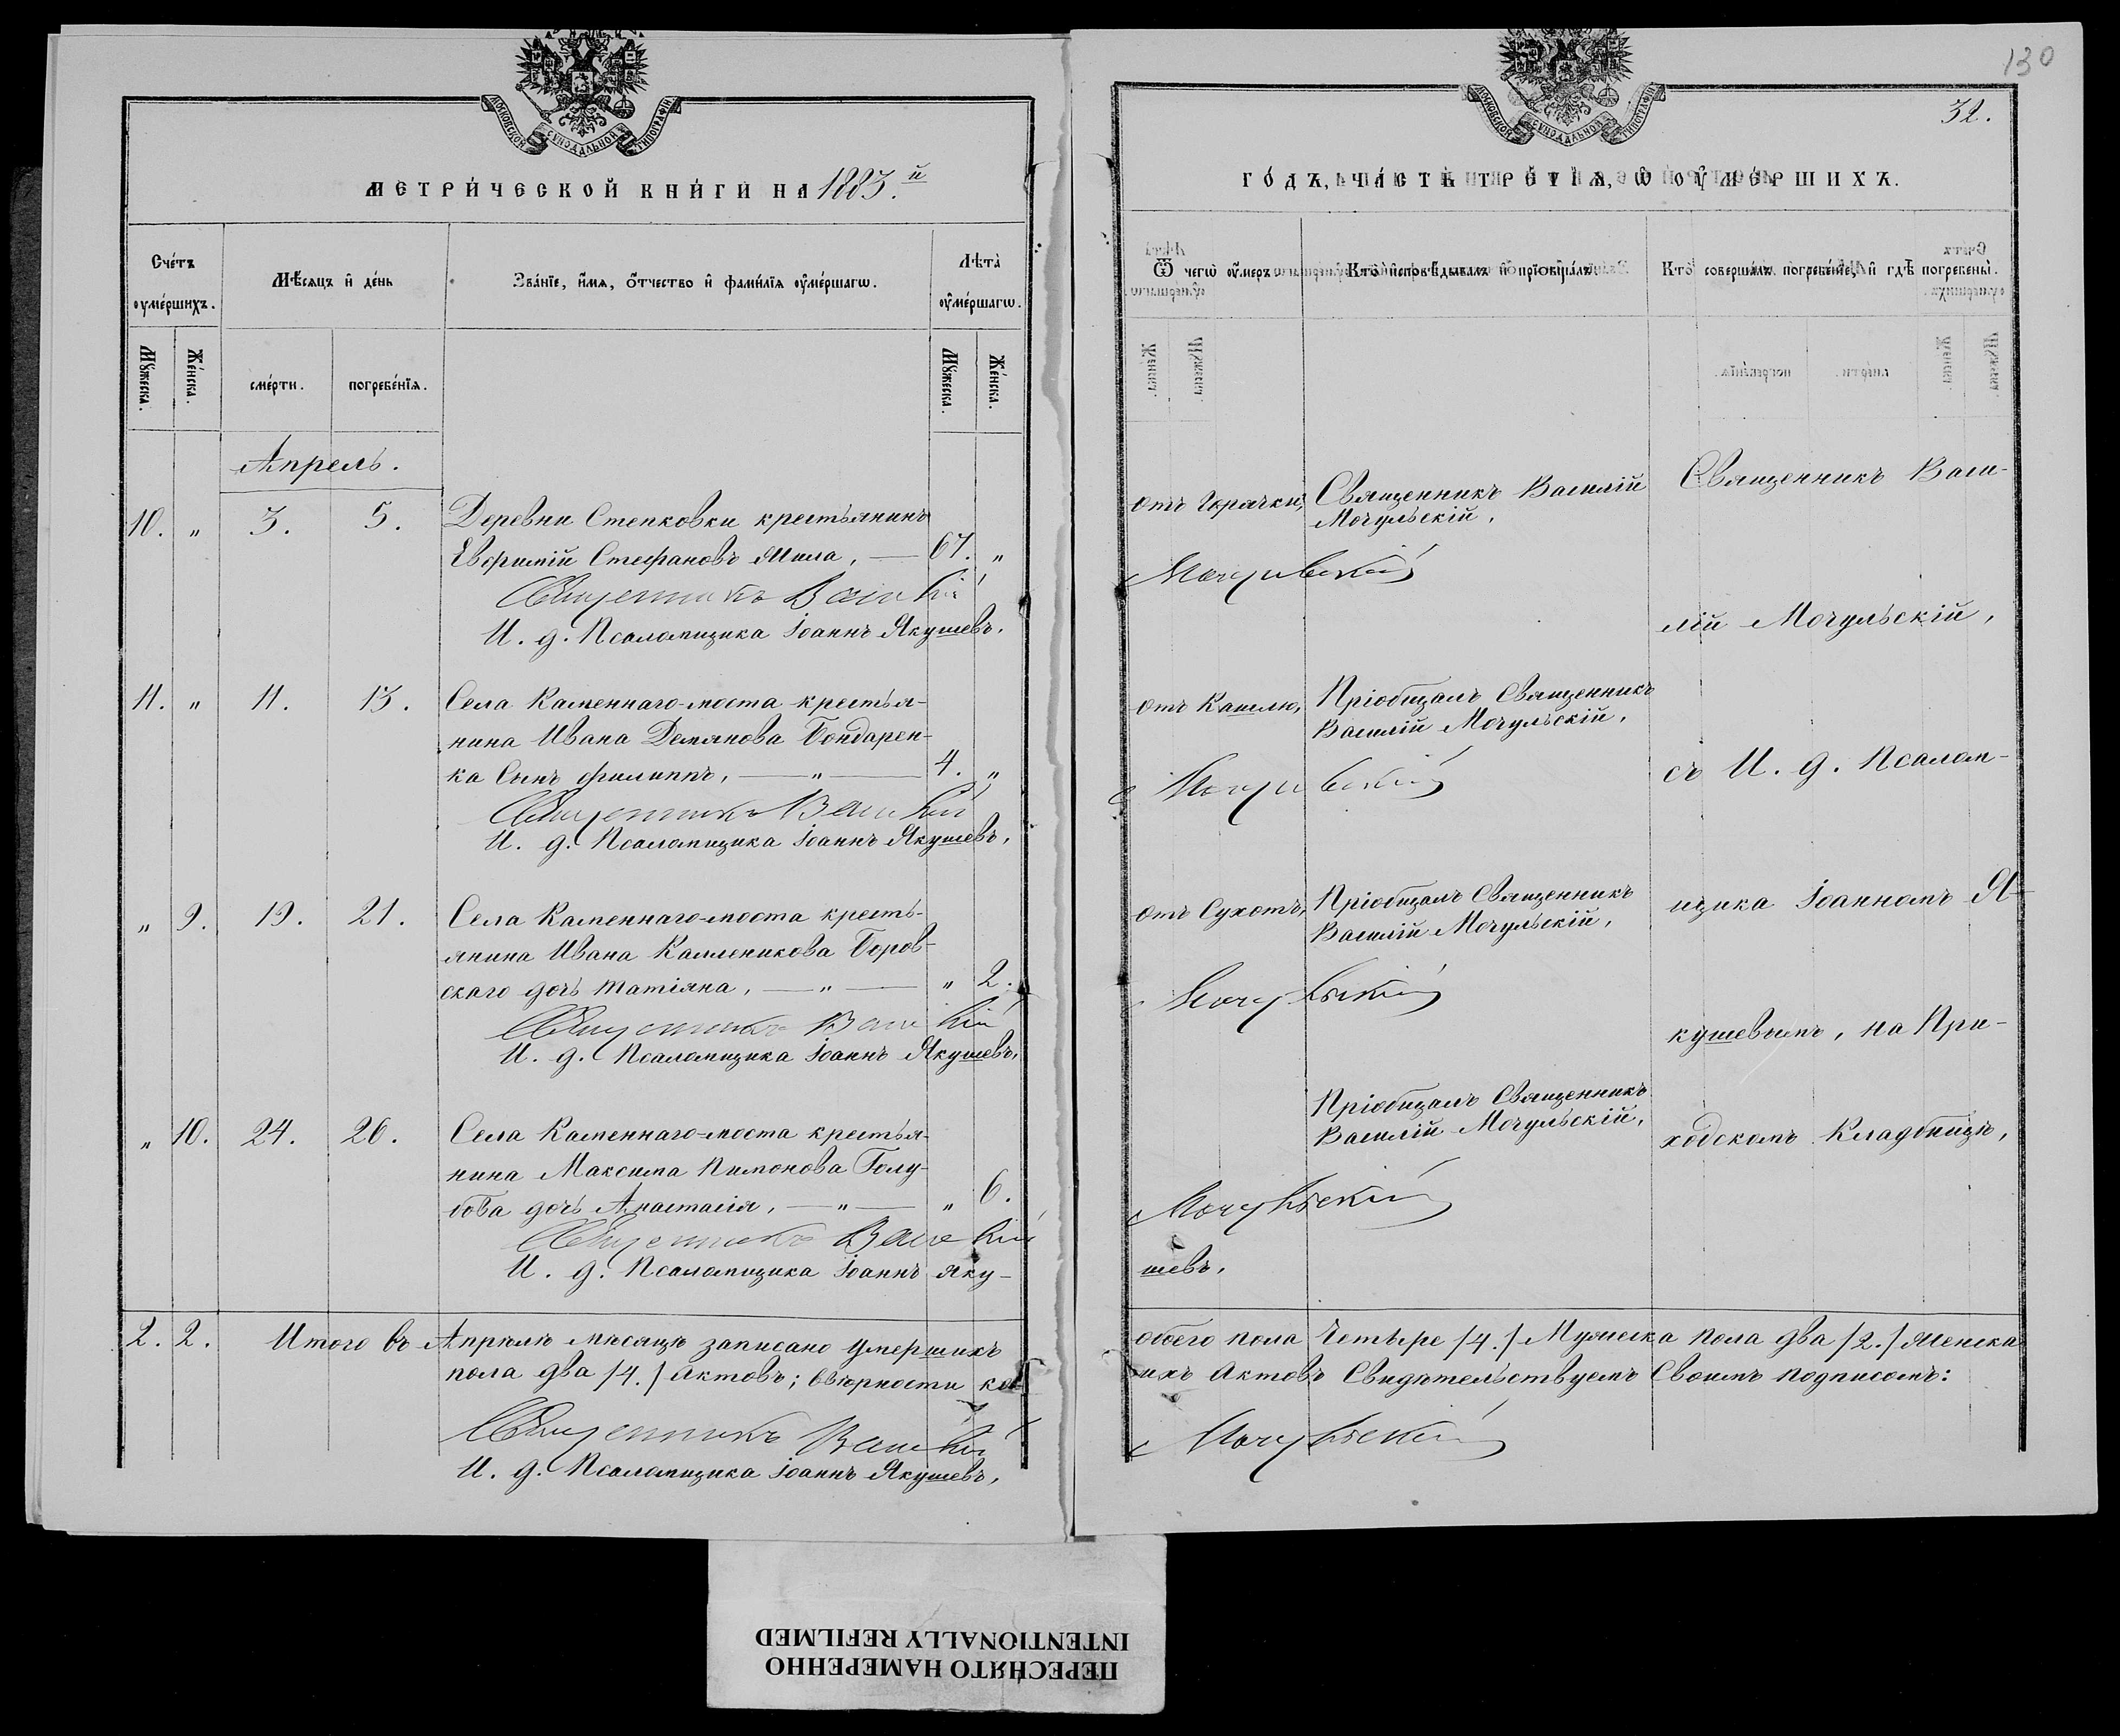 МОСКОВСКОЙ СУНОДАЛЬНОЙ ТИПОГРАФІИ
МЕТРИ́ЧЕСКОЙ КНИ́ГИ НА 1883.й
Сче́тъ ᲂу҆ме́ршихъ.
Мѣ́сяцъ и҆ де́нь
Зва́нїе, и҆́мѧ, ѻ҆́тчество и҆ фами́лїѧ ᲂу҆ме́ршагѡ.
Лѣ́та ᲂу҆ме́ршагѡ.
Мꙋ́жеска.
Же́нска.
сме́рти.
погребе́нїѧ.
Мꙋ́жеска.
Же́нска.
Апрель.
10. „ 3. 5. Деревни Степковки крестьянинъ
Евфимій Стефановъ Мила, — 67. „
Священникъ Васи лій
И. д. Псаломщика Іоаннъ Якушевъ.
11. „ 11. 13. Села Каменнаго-моста крестья-
нина Ивана Демянова Бондарен-
ка Сынъ Филиппъ, — „ — 4. „
Священникъ Васи лій
И. д. Псаломщика Іоаннъ Якушевъ,
„ 9. 19. 21. Села Каменнаго-моста кресть-
янина Ивана Каллѣникова Боров-
скаго дочь Татіяна, — „ — „ 2.
Священникъ Васи лій
И. д. Псаломщика Іоаннъ Якушевъ,
„ 10. 24. 26. Села Каменнаго-моста крестья-
нина Максима Пимонова Голу-
бова дочь Анастасія, — „ — „ 6.
Священникъ Васи лій
И. д. Псаломщика Іоаннъ Яку-
2. 2. Итого въ Апрѣлѣ мѣсяцѣ записано умершихъ
пола два /4./ Актовъ; Ввѣрности ко-
Священникъ Василій
И. д. Псаломщика Іоаннъ Якушевъ,
130
32.
МОСКОВСКОЙ СУНОДАЛЬНОЙ ТИПОГРАФІИ
ГО́ДЪ, ЧА́СТЬ ТРЕ́ТІЯ, Ѡ ᲂУ҆МЕ́РШИХЪ.
Ѿ чегѡ̀ ᲂу҆́меръ
Кто̀ и҆сповѣ́дывалъ и҆ прїѡбща́лъ.
Кто̀ соверша́лъ погребе́нїе, и҆ гдѣ̀ погребены̀.
отъ Горячки, Священникъ Василій
Мочульскій,
Мочульскій
Священникъ Васи-
лій Мочульскій,
отъ Кашлю, Пріобщалъ Священникъ
Василій Мочульскій,
Мочульскій
съ И. д. Псалом-
отъ Сухотъ, Пріобщалъ Священникъ
Василій Мочульскій,
Мочульскій
щика Іоанномъ Я-
кушевымъ, на При-
Пріобщалъ Священникъ
Василій Мочульскій,
Мочульскій
ходскомъ Кладбищѣ,
шевъ,
обоего пола Четыре /4./ Мужеска пола два /2./ Женска
ихъ Актовъ Свидѣтельствуемъ Своимъ подписомъ:
Мочульскій
ПЕРЕСНЯТО НАМЕРЕННО
INTENTIONALLY REFILMED